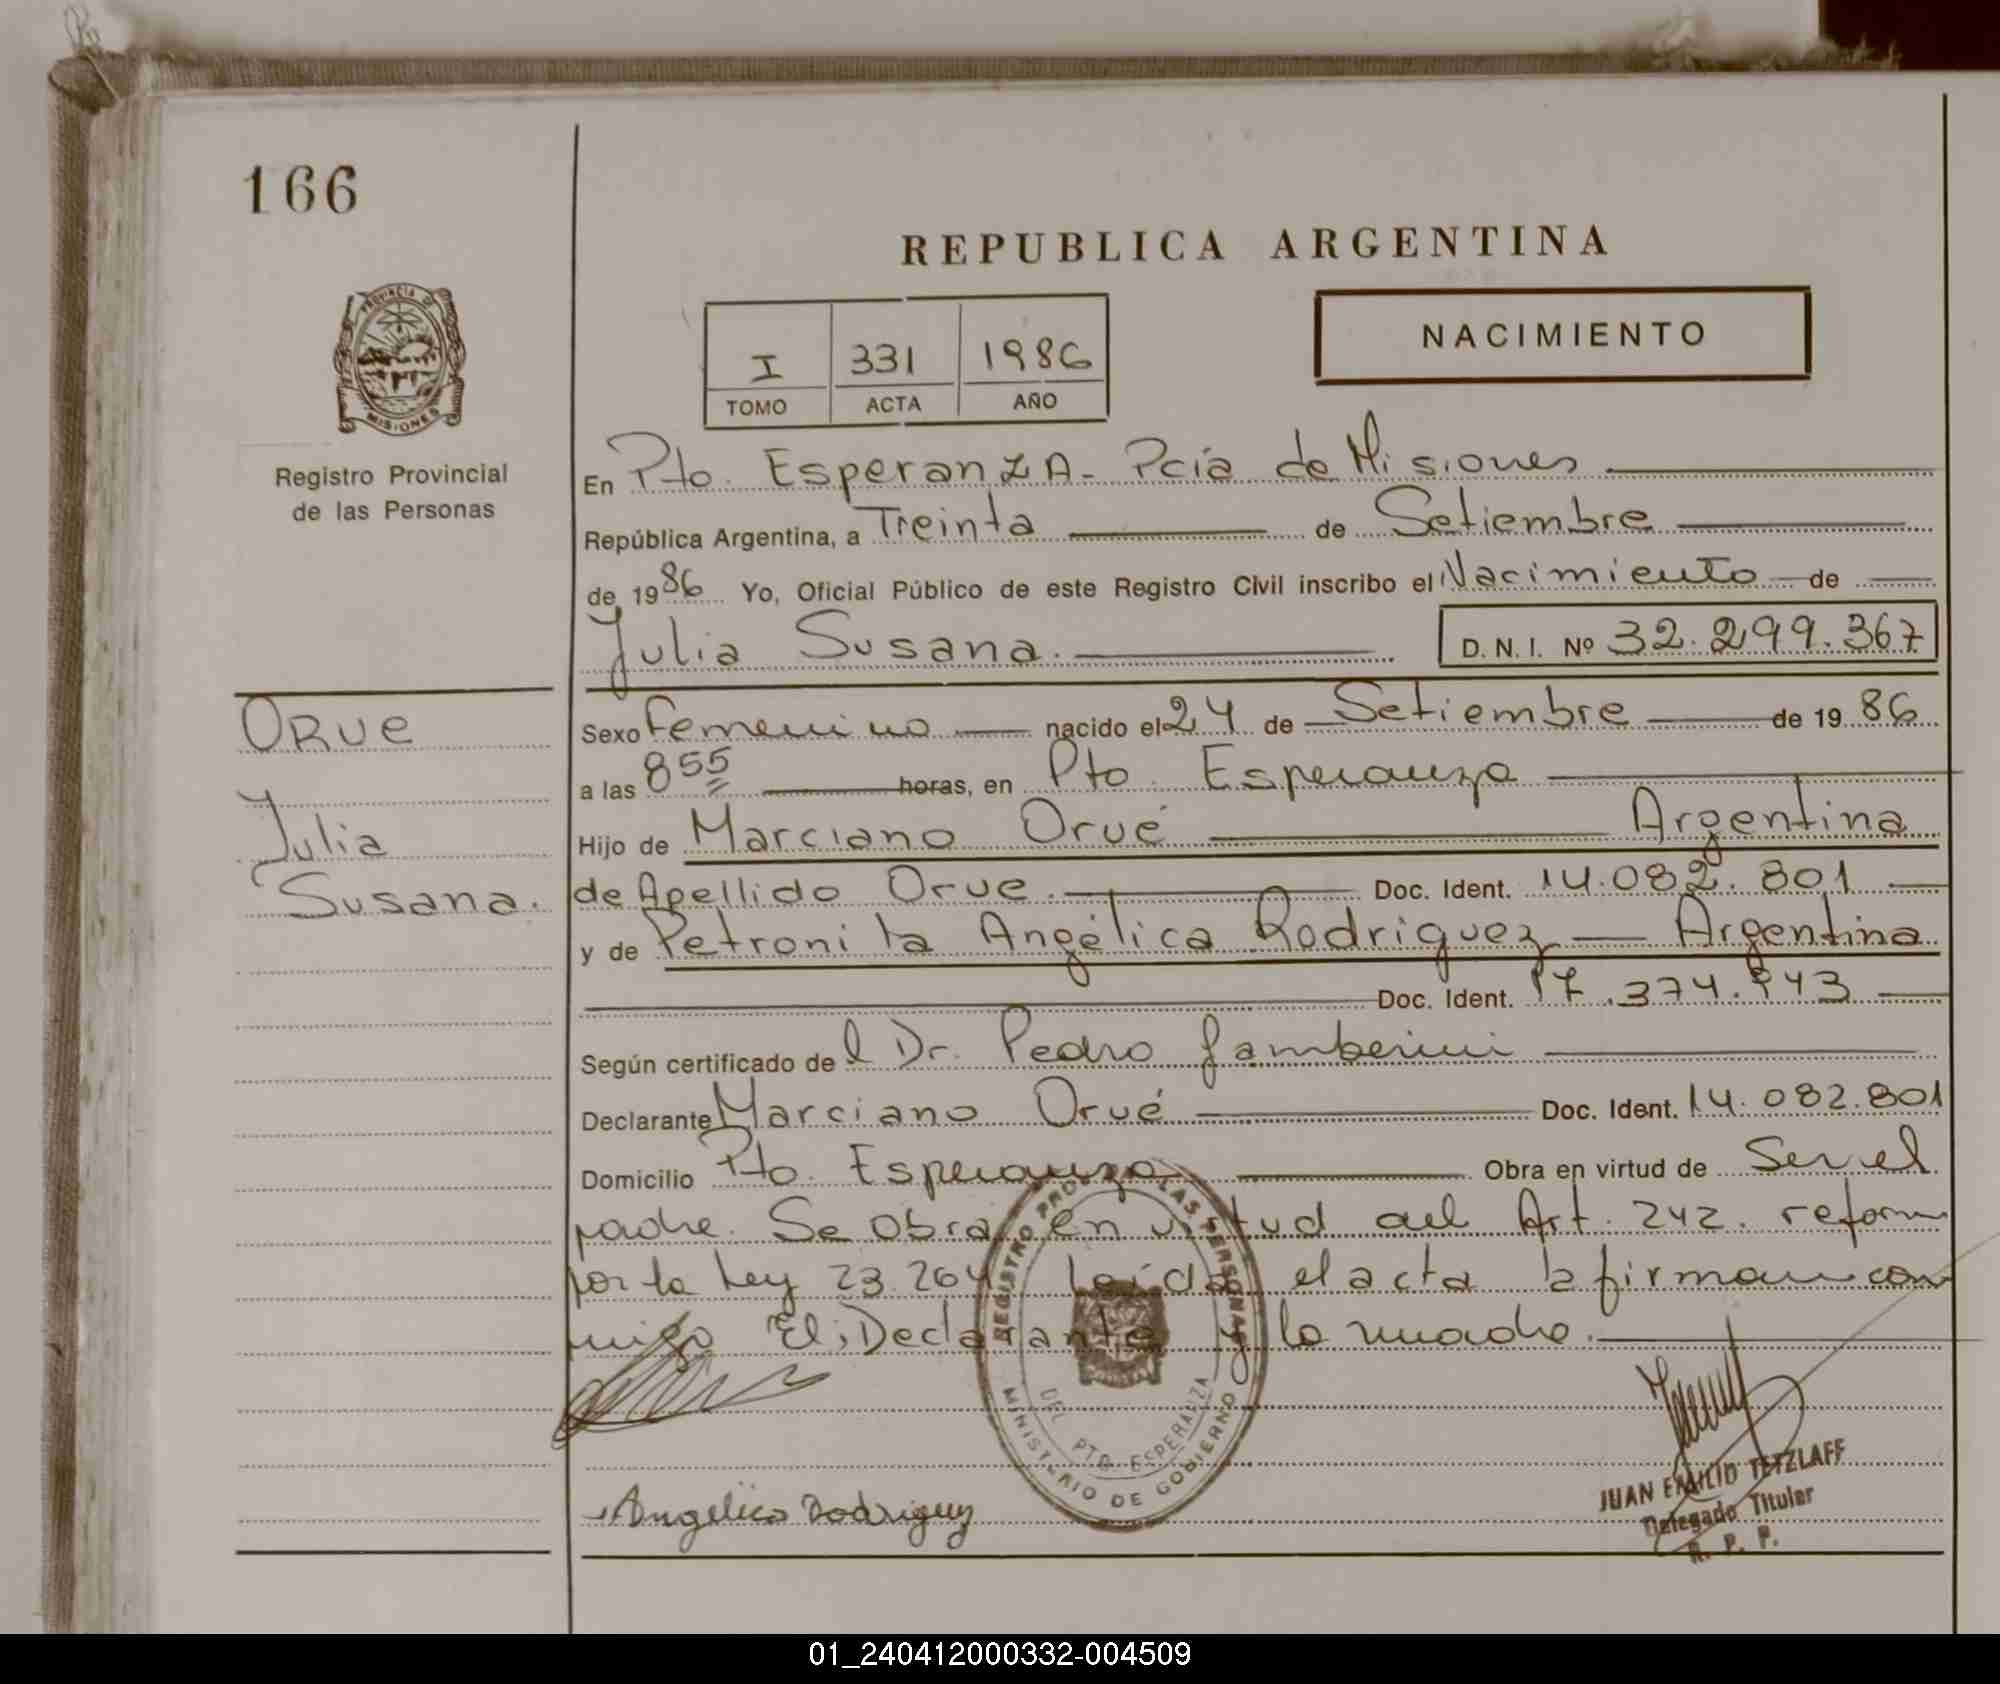 166
REPUBLICA ARGENTINA
PROVINCIA DE
MISIONES
Registro Provincial
de las Personas
I 331 1986
TOMO ACTA AÑO
NACIMIENTO
En Pto. Esperanza - Pcia de Misiones
República Argentina, a Treinta de Setiembre
de 1986 Yo, Oficial Público de este Registro Civil inscribo el Nacimiento de
Julia Susana. D. N. I. Nº 32.299.367
Orue
Julia
Susana.
Sexo Femenino nacido el 24 de Setiembre de 1986
a las 8 55 horas, en Pto. Esperanza
Hijo de Marciano Orué Argentina
de Apellido Orue. Doc. Ident. 14.082.801
y de Petronila Angélica Rodriguez Argentina
Doc. Ident. 17.374.943
Según certificado de l Dr. Pedro Gamberini
Declarante Marciano Orué Doc. Ident. 14.082.801
Domicilio Pto. Esperanza Obra en virtud de Ser el
padre. Se obra en virtud del Art. 242. reform
por la Ley 23.264 Leída el acta la firman con
migo El, Declarante y la madre.
REGISTRO PROV. LAS PERSONAS
DEL PTO. ESPERANZA
MINISTERIO DE GOBIERNO
Angelica Rodriguez
JUAN EMILIO TETZLAFF
Delegado Titular
R. P. P.
01_240412000332-004509